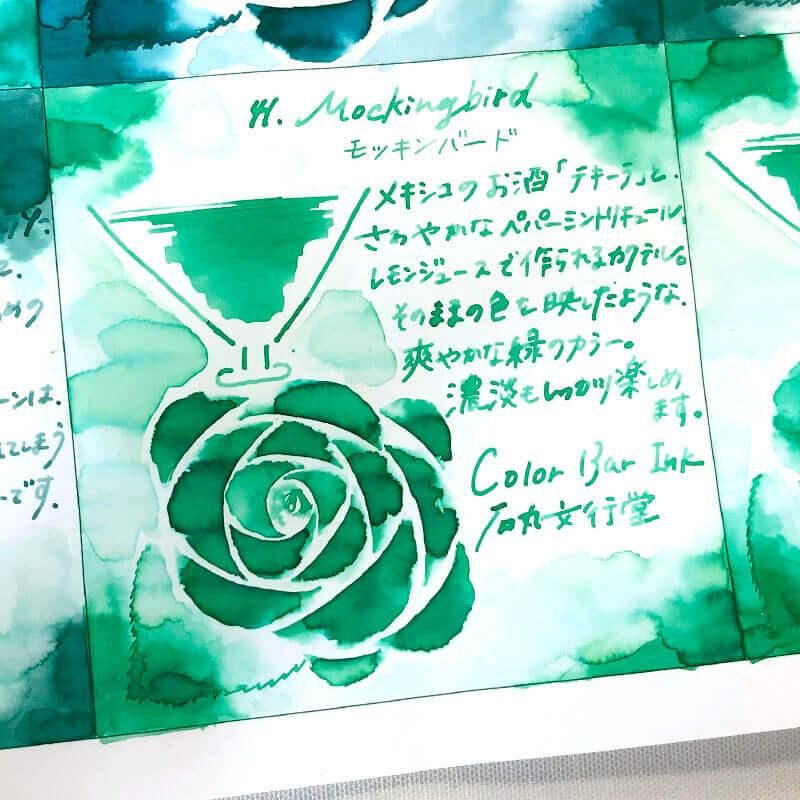 41. Mockingbird
モッキンバード
メキシコのお酒「テキーラ」と、
さわやかなペパーミントリキュール、
レモンジュースで作られるカクテル。
そのままの色を映したような、
爽やかな緑のカラー。
濃淡もしっかり楽しめ
ます。
Color Bar Ink
石丸文行堂
めの
ーンは、
れてしまう
ーです。